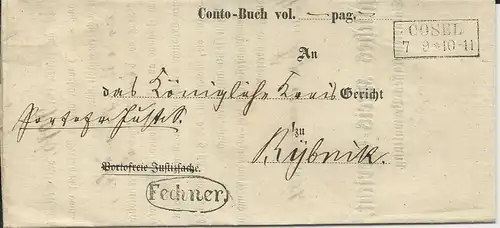 Conto-Buch vol. — pag. —
COSEL
7 9 * 10-11
An
das Königliche Kreis Gericht
Portopfl. Justizs.
zu
Rybnik.
Portofreie Justizsache.
Fechner.